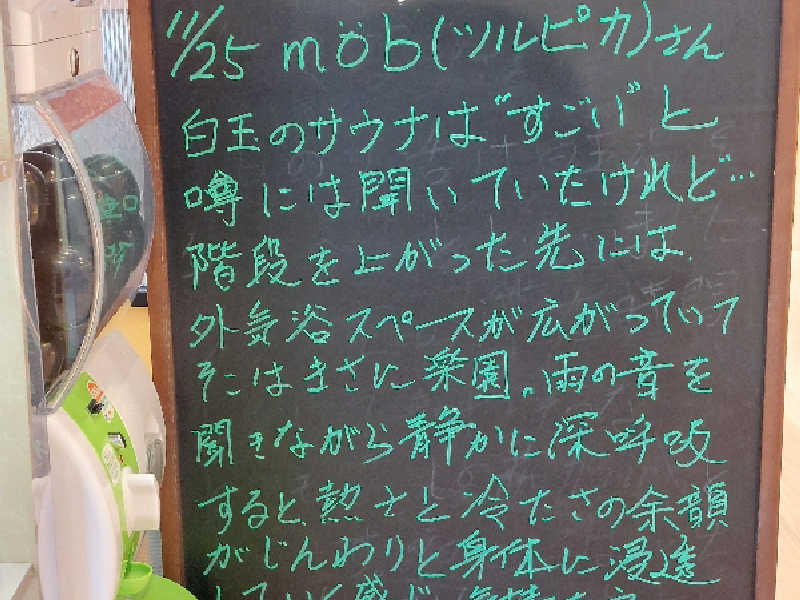 11/25 möb(ツルピカ)さん
白玉のサウナは"すごい"と
噂には聞いていたけれど…
階段を上がった先には、
外気浴スペースが広がっていて
そこはまさに楽園。雨の音を
聞きながら静かに深呼吸
すると、熱さと冷たさの余韻
がじんわりと身体に浸透
していく感じ